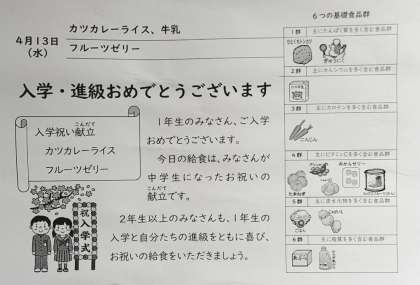 4月13日
(水)
カツカレーライス、牛乳
フルーツゼリー
入学・進級おめでとうございます
こんだて
入学祝い献立
カツカレーライス
フルーツゼリー
祝入学式
1年生のみなさん、ご入学
おめでとうございます。
今日の給食は、みなさんが
中学生になったお祝いの
こんだて
献立です。
2年生以上のみなさんも、1年生の
入学と自分たちの進級をともに喜び、
お祝いの給食をいただきましょう。
6つの基礎食品群
1群 主にたんぱく質を多く含む食品群
ぎゅうにく
2群
3群 主にカロテンを多く含む食品群
にんじん
4群 主にビタミンCを多く含む食品群
たまねぎ
みかんゼリー
5群 主に炭水化物を多く含む食品群
ごはん
6群 主に脂質を多く含む食品群